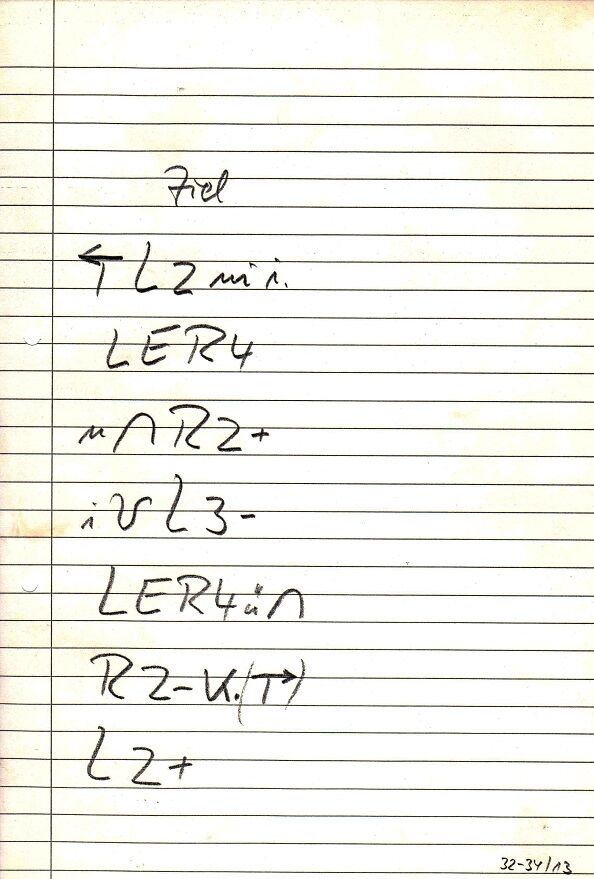 Ziel
←T L2 mi i.
LER4
n∩R2+
iVL3-
LER4ü∩
R2-K.(T→)
L2+
32-34/13